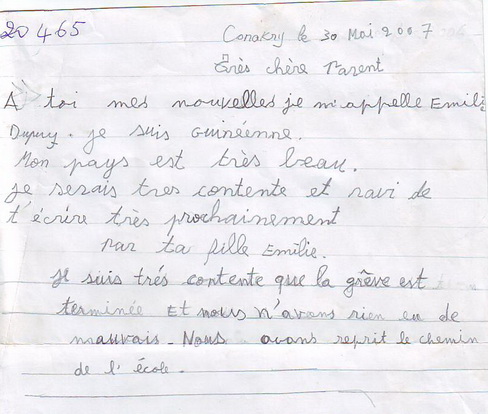 20465
Conakry le 30 Mai 2007
Très chère Parent
À toi mes nouvelles je m'appelle Emilie
Dupuy. je suis Guinéenne.
Mon pays est très beau.
je serais tres contente et ravi de
t'écrire très prochainement
Par ta fille Emilie.
je suis trés contente que la grêve est
terminée Et nous n'avons rien eu de
mauvais. Nous avons reprit le chemin
de l'école.